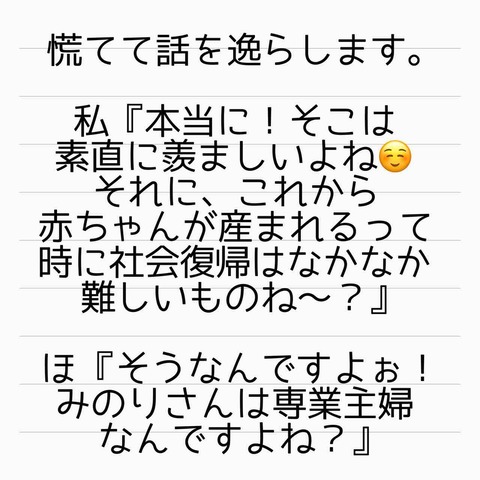 慌てて話を逸らします。
私『本当に！そこは
素直に羨ましいよね☺️
それに、これから
赤ちゃんが産まれるって
時に社会復帰はなかなか
難しいものね〜？』
ほ『そうなんですよぉ！
みのりさんは専業主婦
なんですよね？』